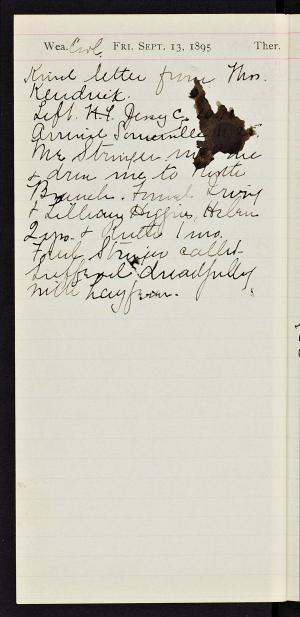 Wea. Cool FRI. SEPT. 13, 1895 Ther.
Kind letter from Mrs.
Kendrick.
Left. H.P. Jersey C.
arrive Somerville
Mr Stringer met me
& drove me to North
Branch. Found Irving
& Lillian Higgins, Helen
2 yrs. & Ruth 1 mo.
Fred Stringer called.
Suffered dreadfully
with hayfever.